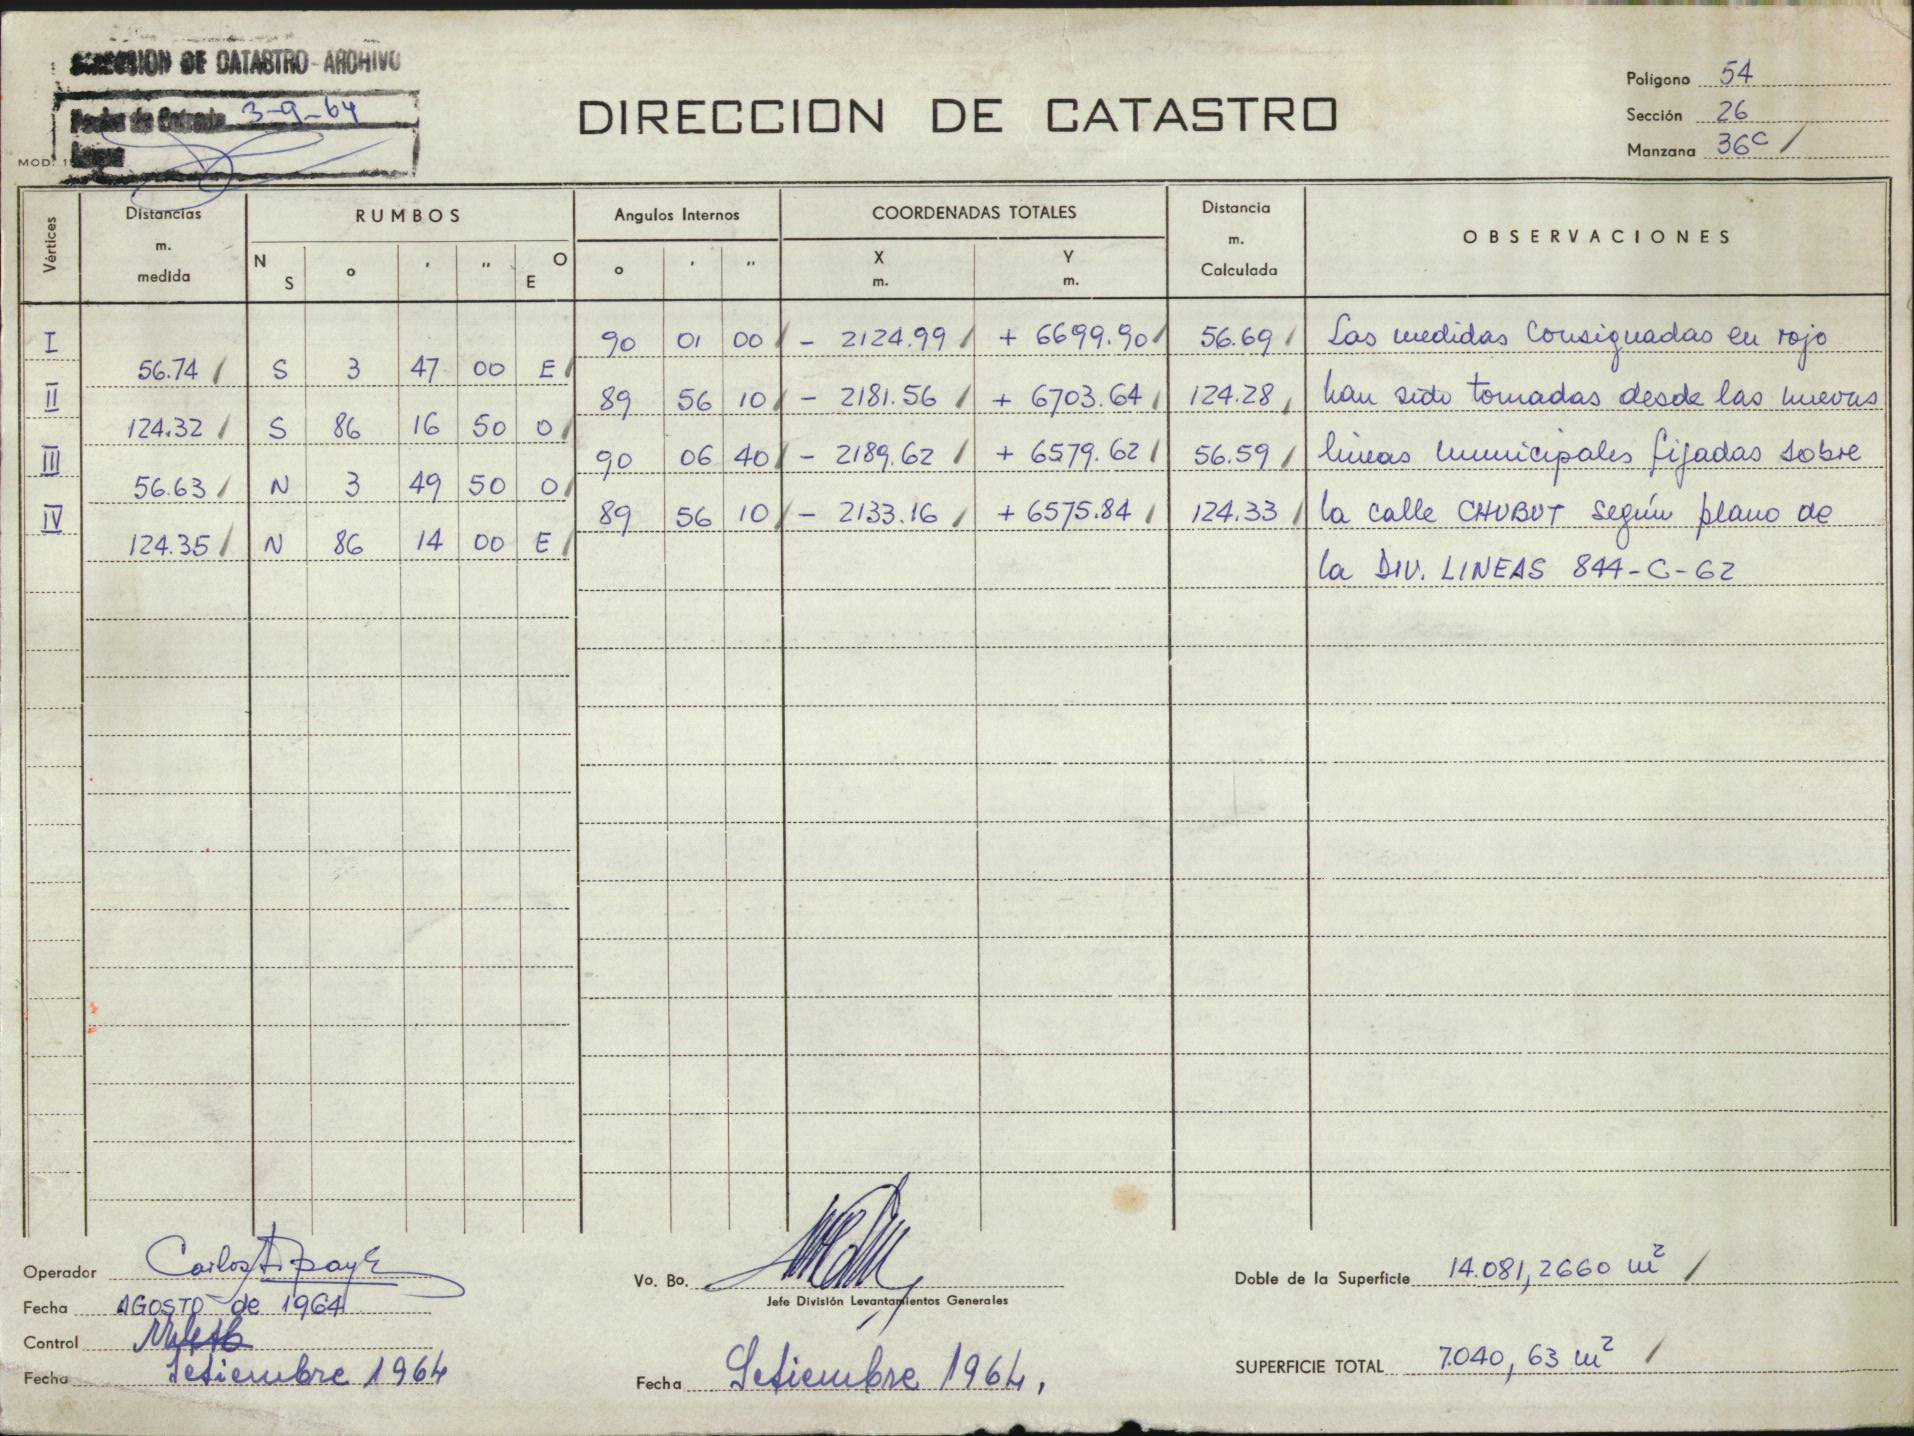 DIRECCION DE CATASTRO - ARCHIVO
Fecha de Entrada 3-9-64
MOD.
DIRECCION DE CATASTRO
Polígono 54
Sección 26
Manzana 36c /
Vértices
Distancias m. medida
RUMBOS
N S ° ' " O E
Angulos Internos
° ' "
COORDENADAS TOTALES
X m. Y m.
Distancia m. Calculada
OBSERVACIONES
I 90 01 00 / - 2124.99 / + 6699.90 / 56.69 / Las medidas consignadas en rojo
56.74 / S 3 47 00 E /
II 89 56 10 / - 2181.56 / + 6703.64 / 124.28 / han sido tomadas desde las nuevas
124.32 / S 86 16 50 O /
III 90 06 40 / - 2189.62 / + 6579.62 / 56.59 / lineas municipales fijadas sobre
56.63 / N 3 49 50 O /
IV 89 56 10 / - 2133.16 / + 6575.84 / 124.33 / la calle CHUBUT según plano de
124.35 / N 86 14 00 E /
la DIV. LINEAS 844-C-62
Operador Carlos
Fecha AGOSTO de 1964
Control
Fecha Setiembre 1964
Vo. Bo.
Jefe División Levantamientos Generales
Fecha Setiembre 1964.
Doble de la Superficie 14.081,2660 m² /
SUPERFICIE TOTAL 7.040,63 m² /